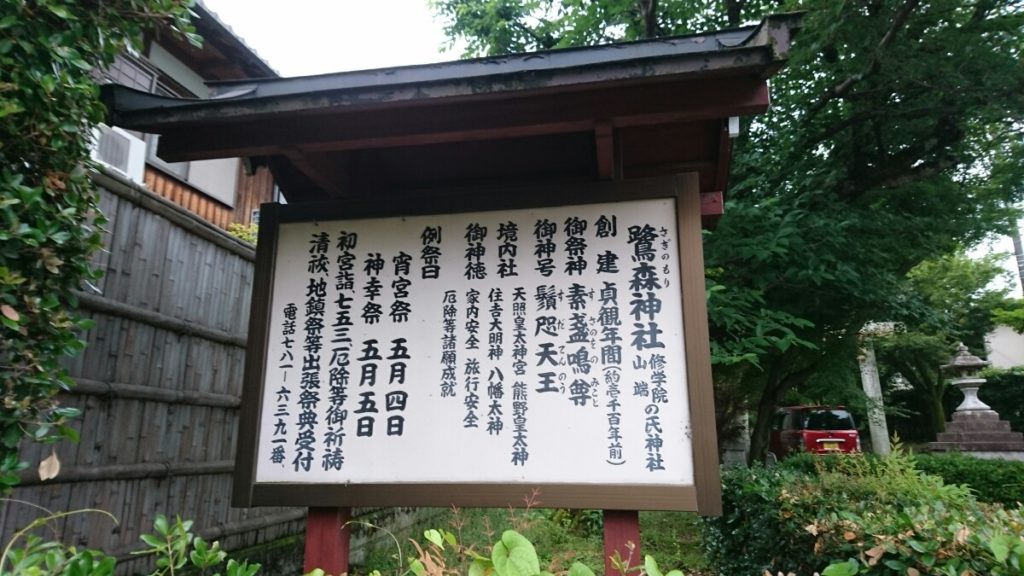 鷺森神社 修学院の氏神社
さぎのもり 山端
創建 貞観年間(約壱千百年前)
御祭神 素盞嗚尊
すさのおのみこと
御神号 鬚咫天王
すだてんのう
境内社 天照皇太神宮 熊野皇太神
住吉大明神 八幡太神
御神徳 家内安全 旅行安全
厄除等諸願成就
例祭日
宵宮祭 五月四日
神幸祭 五月五日
初宮詣、七五三、厄除等御祈祷
清祓、地鎮祭等出張祭典受付
電話七八一―六三九一番、